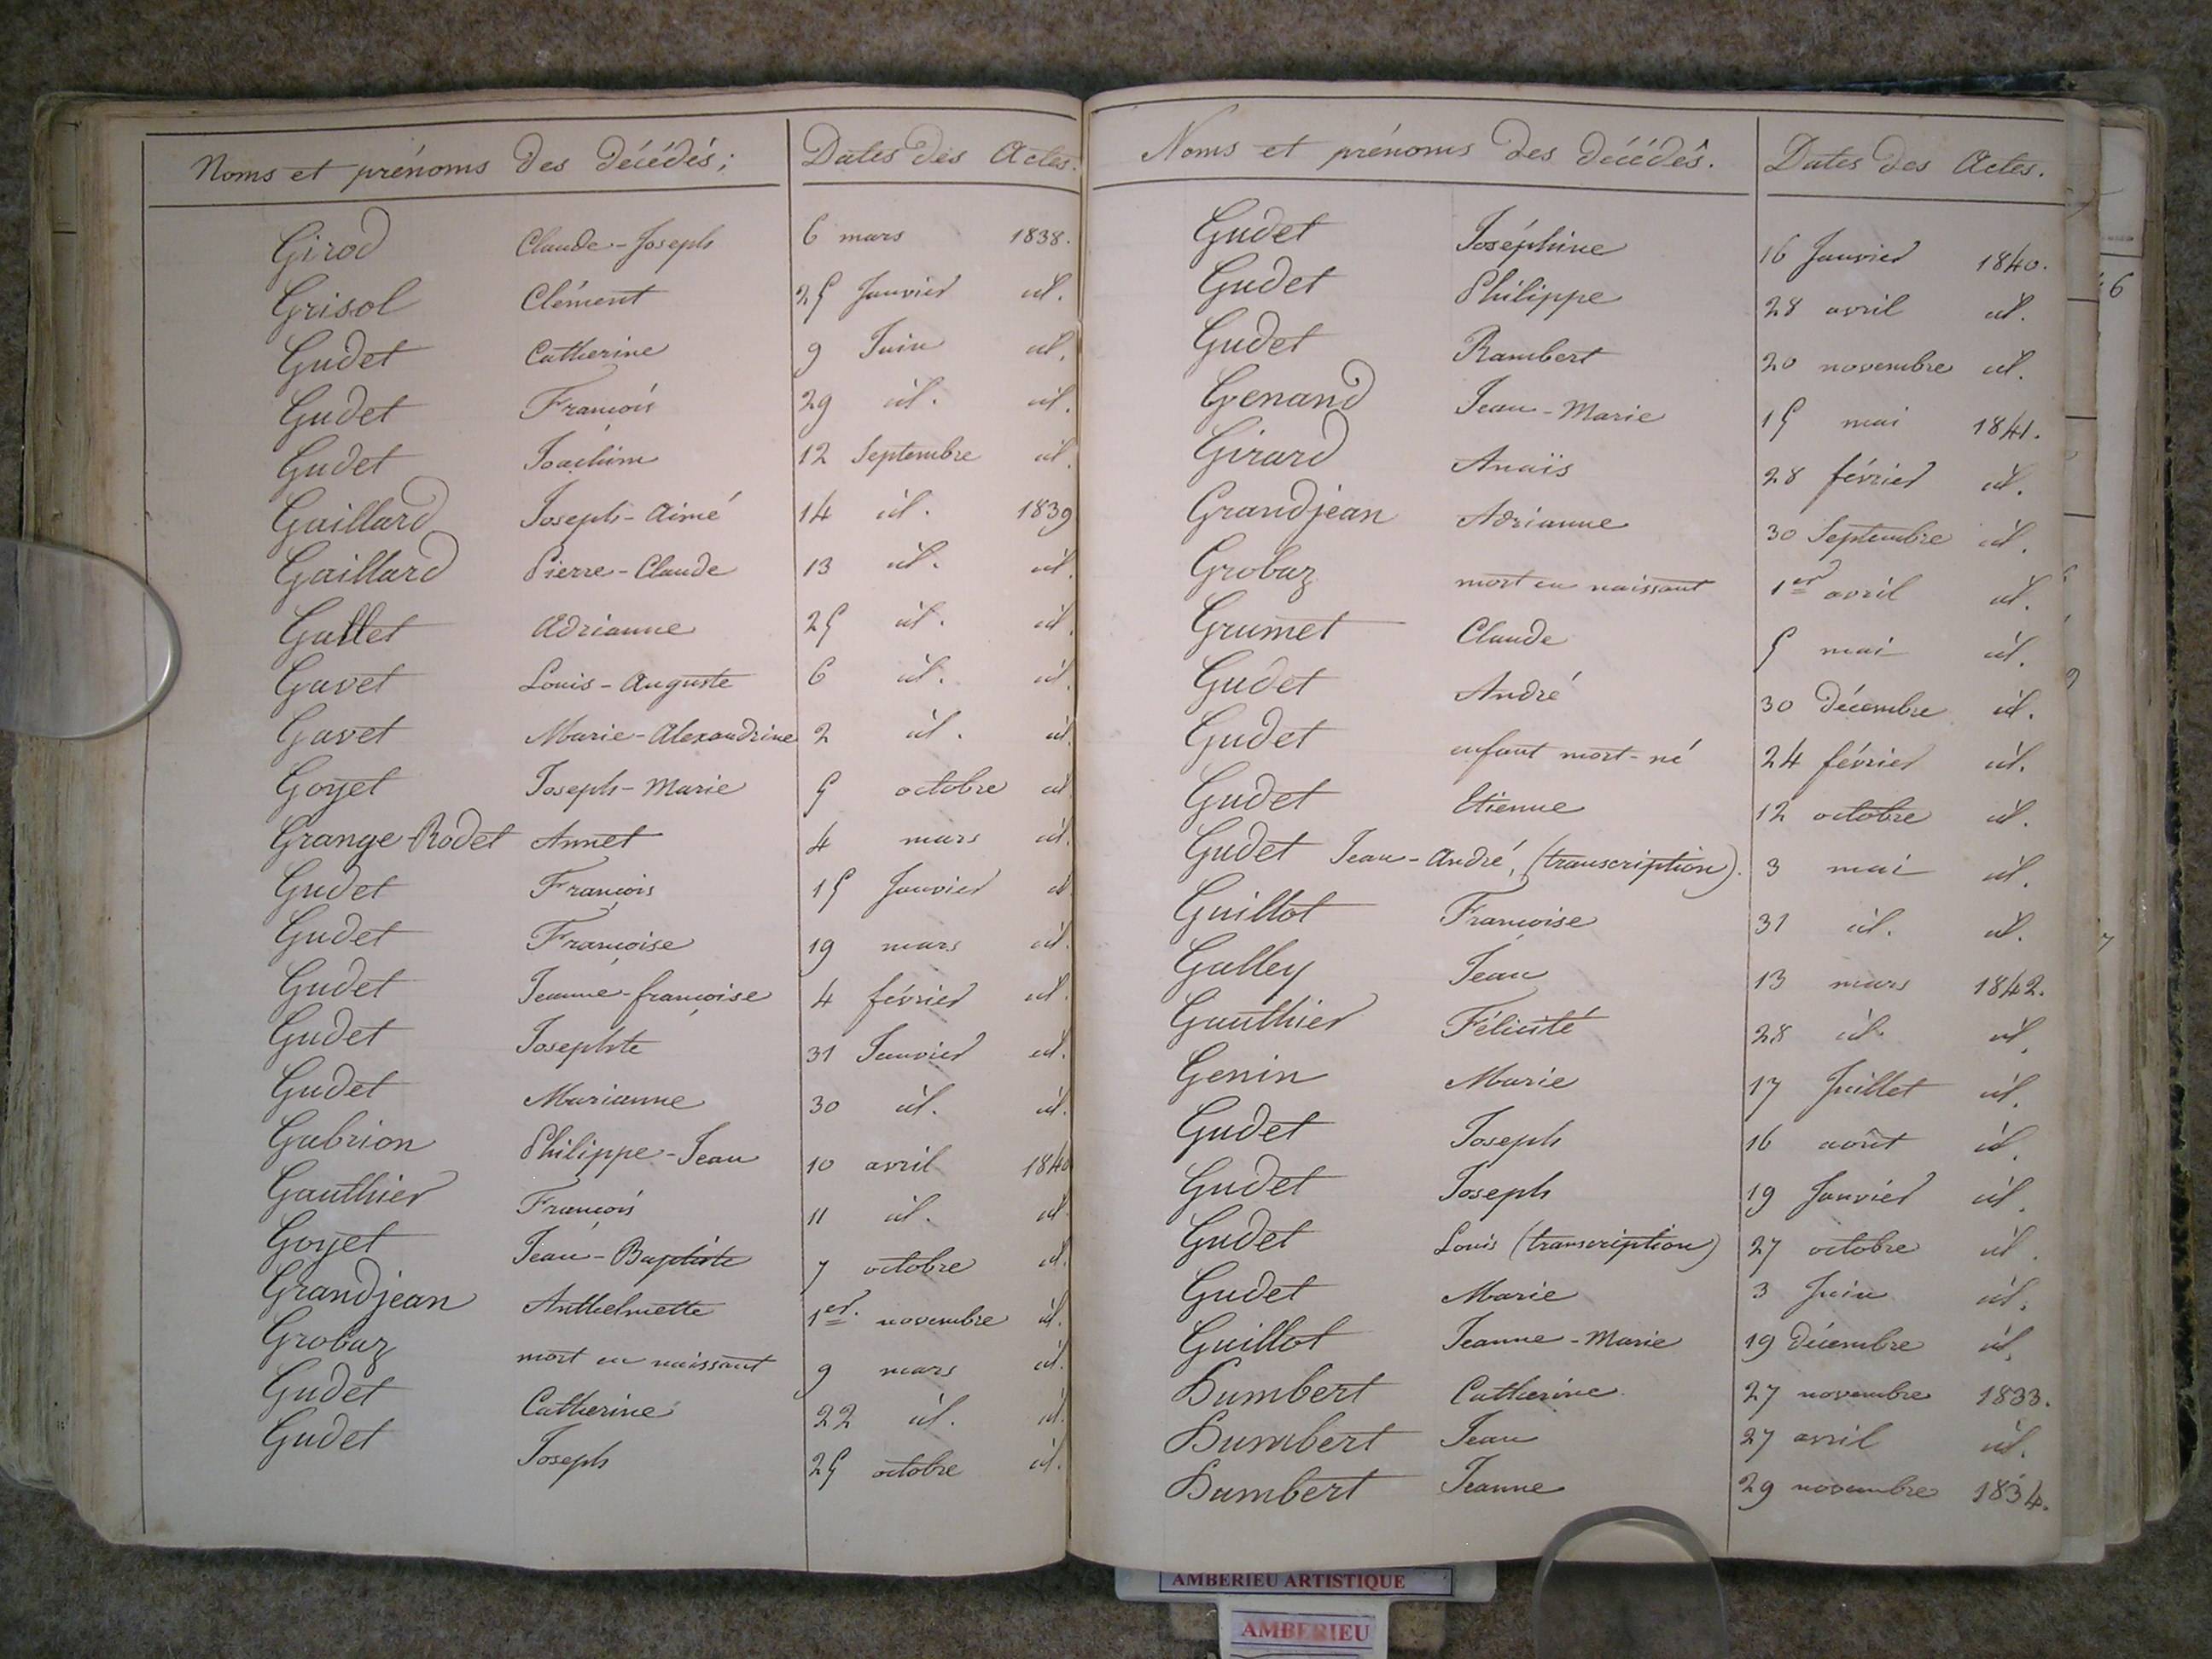 Noms et prénoms des décédés; Dates des Actes.
Girod Claude-Joseph 6 mars 1838.
Grisol Clément 25 Janvier id.
Gudet Catherine 9 Juin id.
Gudet François 29 id. id.
Gudet Joachim 12 Septembre id.
Gaillard Joseph-Aimé 14 id. 1839
Gaillard Pierre-Claude 13 id. id.
Gallet Adrianne 25 id. id.
Gavet Louis-Auguste 6 id. id.
Gavet Marie-Alexandrine 2 id. id.
Goyet Joseph-Marie 5 octobre id.
Grange-Rodet Annet 4 mars id.
Gudet François 15 Janvier id
Gudet Françoise 19 mars id.
Gudet Jeanne-françoise 4 février id.
Gudet Josephte 31 Janvier id.
Gudet Marianne 30 id. id.
Gabrion Philippe-Jean 10 avril 1840
Gauthier François 11 id. id.
Goyet Jean-Baptiste 7 octobre id.
Grandjean Anthelmette 1er. novembre id.
Grobaz mort en naissant 9 mars id.
Gudet Catherine 22 id. id.
Gudet Joseph 25 octobre id.
Noms et prénoms des décédés. Dates des Actes.
Gudet Joséphine 16 Janvier 1840.
Gudet Philippe 28 avril id.
Gudet Rambert 20 novembre id.
Genand Jean-Marie 15 mai 1841.
Girard Anaïs 28 février id.
Grandjean Adrianne 30 Septembre id.
Grobaz mort en naissant 1er avril id.
Grumet Claude 5 mai id.
Gudet André 30 décembre id.
Gudet enfant mort-né 24 février id.
Gudet Etienne 12 octobre id.
Gudet Jean-André, (transcription). 3 mai id.
Guillot Françoise 31 id. id.
Galley Jean 13 mars 1842.
Gauthier Félicité 28 id. id.
Genin Marie 17 Juillet id.
Gudet Joseph 16 août id.
Gudet Joseph 19 Janvier id.
Gudet Louis (transcription) 27 octobre id.
Gudet Marie 3 Juin id.
Guillot Jeanne-Marie 19 décembre id.
Humbert Catherine 27 novembre 1833.
Humbert Jean 27 avril id.
Humbert Jeanne 29 novembre 1834.
6
AMBERIEU ARTISTIQUE
AMBERIEU